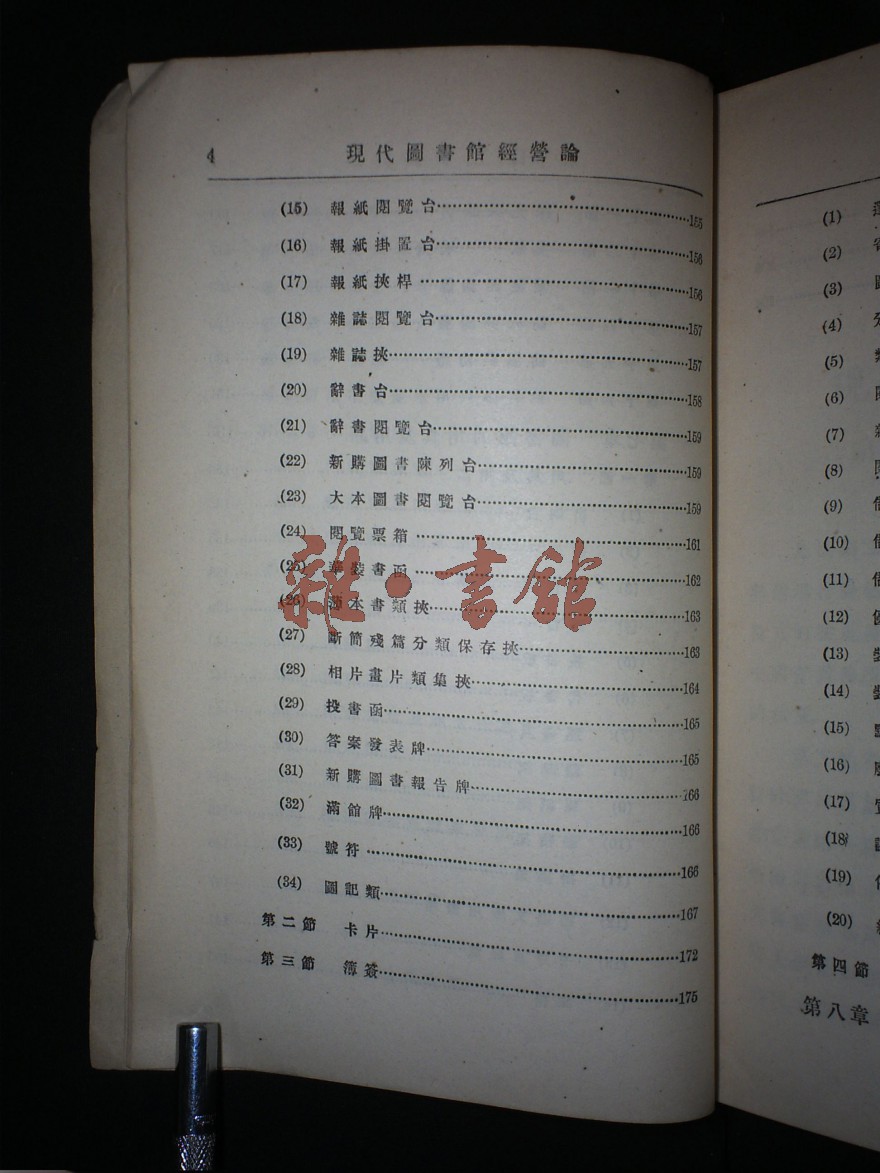 4 現代圖書館經營論
(15) 報紙閱覽台……155
(16) 報紙掛置台……156
(17) 報紙挾桿……156
(18) 雜誌閱覽台……157
(19) 雜誌挾……157
(20) 辭書台……158
(21) 辭書閱覽台……159
(22) 新購圖書陳列台……159
(23) 大本圖書閱覽台……159
(24) 閱覽票箱……161
(25) 華裝書函……162
(26) 薄本書類挾……163
(27) 斷簡殘篇分類保存挾……163
(28) 相片畫片類集挾……164
(29) 投書函……165
(30) 答案發表牌……165
(31) 新購圖書報告牌……166
(32) 滿館牌……166
(33) 號符……166
(34) 圖記類……167
第二節 卡片……172
第三節 簿簽……175
雜·書館
(1)
(2)
(3)
(4)
(5)
(6)
(7)
(8)
(9)
(10)
(11)
(12)
(13)
(14)
(15)
(16)
(17)
(18)
(19)
(20)
第四節
第八章